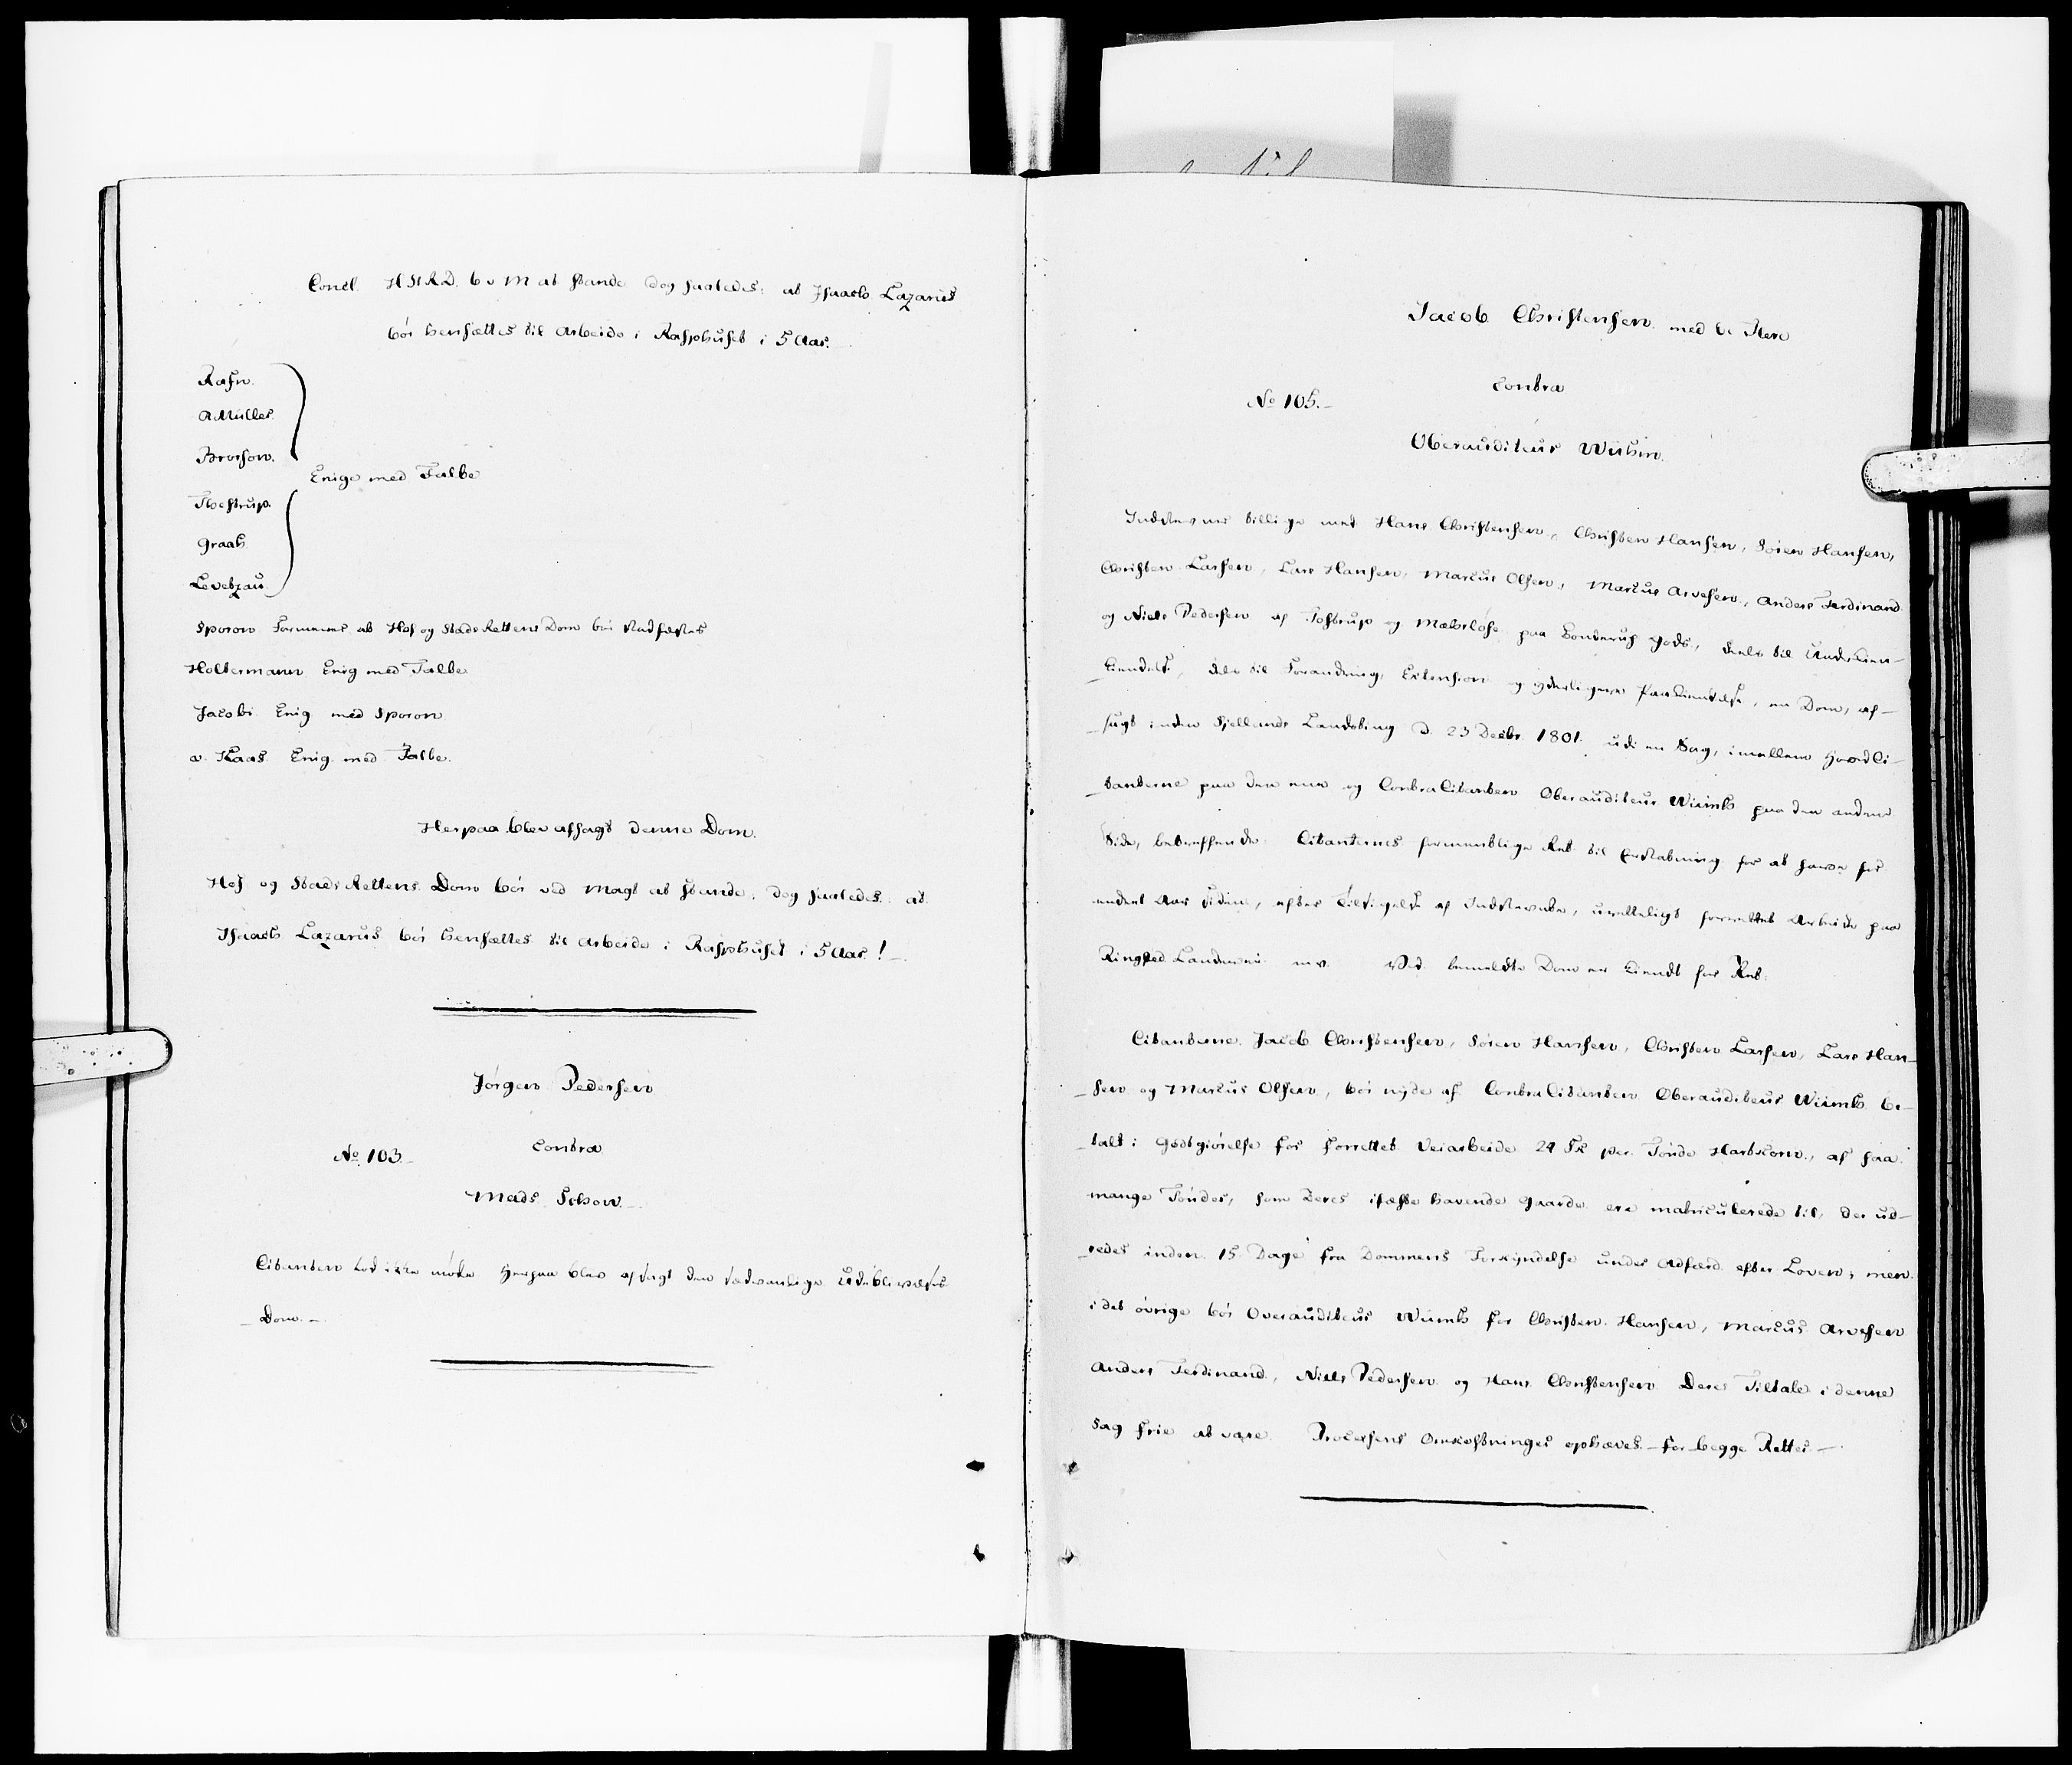 Concl. HStRD. b v M at stande dog saaledes: at Isaach Lazarus
bör hensættes til Arbeide i Rasphuset i 5 Aar.
Rafn.
A Müller.
Brorson.
Enige med Falbe
Thestrup.
Graah
Levetzau.
Sporon Formener at Hof og Stads Rettens Dom bör stadfæstes
Holtermann Enig med Falbe
Jacobi Enig med Sporon
v. Kaas. Enig med Falbe.
Herpaa blev afsagt denne Dom.
Hof og Stads Rettens Dom bör ved Magt at stande; dog saaledes: at
Isaach Lazarus bör hensættes til Arbeide i Rasphuset i 5 Aar! -
Jörgen Pedersen
contra
No 103.-
Mads Schow.-
Citanten lod ikke möde Herpaa blev afsagt den sædvanlige Udeblivelses
Dom.-
Jacob Christensen med de Flere
contra
No 105.-
Oberauditeur
Indstevner tillige med Hans Christensen, Christen Hansen, Sören Hansen,
Christen Larsen, Lars Hansen, Marcus Olsen, Marcus Arvesen, Anders Ferdinand
og Niels Pedersen af Tostrup og paa gods, deels til Underkien-
-kiendelse, dels til Forandring, Extension og yderligere Paakiendelse, en Dom, af-
-sagt inden Siellands Landsting d. 23 Decbr. 1801. udi en Sag, imellem HovedCi-
-tanterne paa den ene og ContraCitanten Oberauditeur paa den anden
Side, betreffende Citanternes formentlige Ret til Erstatning for at have for
endeel Aar siden, efter Tilsigelse af Indstevnte, uretteligt forrettet Arbeide paa
Ringsted Landevei m.v. Ved bemeldte Dom er kiendt for Ret:
Citanterne Jacob Christensen, Sören Hansen, Christen Larsen, Lars Han-
-sen og Marcus Olsen, bör nyde af ContraCitanten Oberauditeur be-
-talt i Godtgiörelse for forrettet Veiarbeide 24 Sk per Tönde Hartkorn, af saa
mange Tönder, som deres ifæste havende Gaarde ere matriculerede til, der ud-
-redes inden 15 Dage fra Dommens Forkyndelse under Adfærd efter Loven; men
i det övrige bör Overauditeur for Christen Hansen, Marcus Arvesen
Anders Ferdinand, Niels Pedersen og Hans Christensen Deres Tiltale i denne
Sag frie at være. Processens Omkostninger ophæves for begge Retter.-